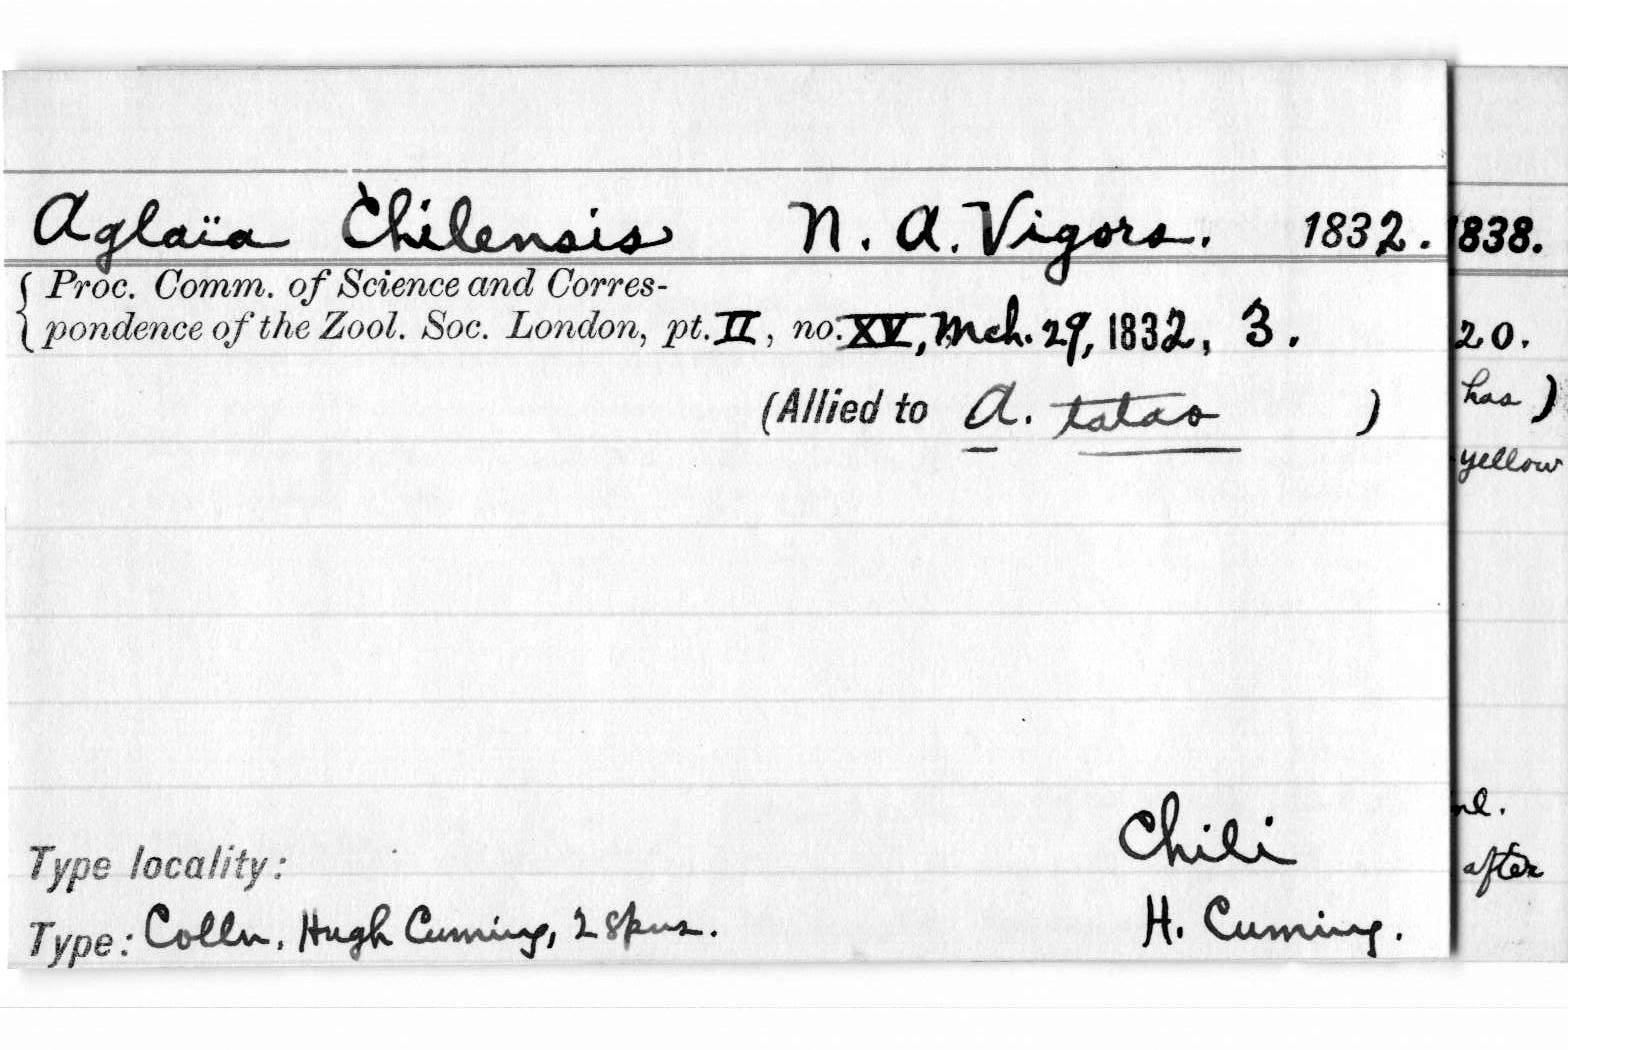 Aglaïa Chilensis N. A. Vigors. 1832. 1838.
Proc. Comm. of Science and Corres-
pondence of the Zool. Soc. London, pt. II, no. XV, Mch. 29, 1832, 3. 20.
(Allied to A. tatao ) has )
yellow
Chili
Type locality: after
Type: Colln. Hugh Cuming, 2 spns. H. Cuming.